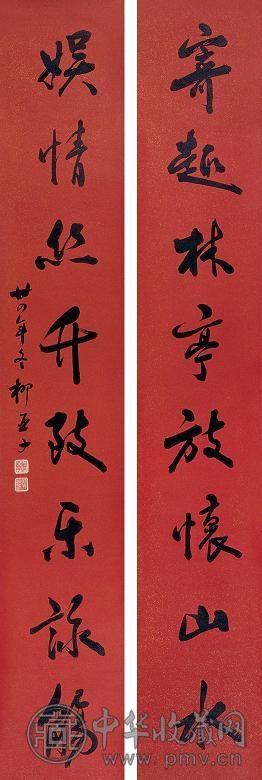 寄趣林亭放懷山水
娛情丝竹致乐詠觴
卅四年冬柳亞子
中华收藏网
www.pmv.cn